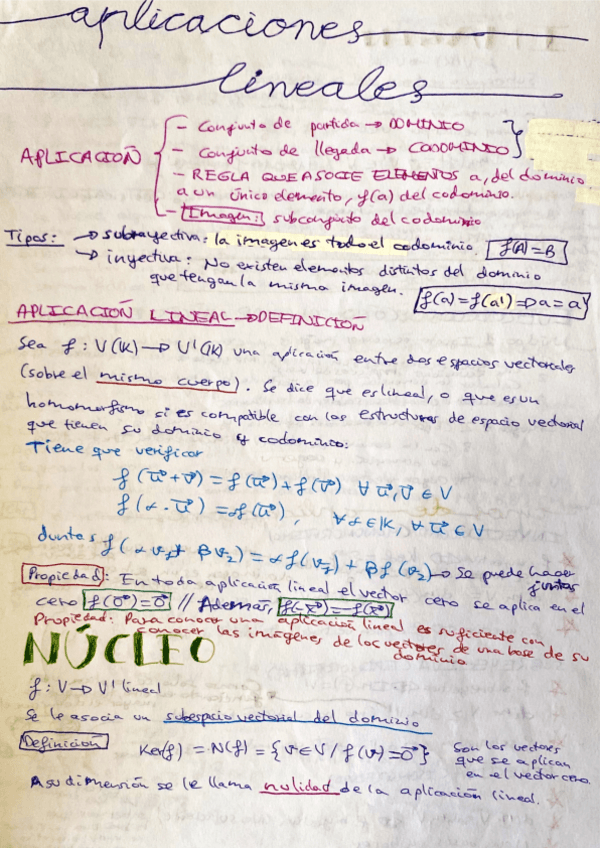 aplicaciones
lineales
APLICACIÓN
- Conjunto de partida → DOMINIO
- Conjunto de llegada → CODOMINIO
- REGLA QUE ASOCIE ELEMENTOS a, del dominio
a un único elemento, f(a) del codominio.
- Imagen: subconjunto del codominio
Tipos: → subrayectiva: la imagen es todo el codominio. f(A)=B
→ inyectiva: No existen elementos distintos del dominio
que tengan la misma imagen. f(a)=f(a')=>a=a'
APLICACIÓN LINEAL → DEFINICIÓN
Sea f: V(K) → V'(K) una aplicación entre dos espacios vectoriales
(sobre el mismo cuerpo). Se dice que es lineal, o que es un
homomorfismo si es compatible con las estructuras de espacio vectorial
que tienen su dominio y codominio:
Tiene que verificar
f(u⃗+v⃗)=f(u⃗)+f(v⃗) ∀ u⃗,v⃗ ∈ V
f(α·u⃗)=αf(u⃗), ∀α∈K, ∀ u⃗ ∈ V
Juntas f(αv₁+βv₂)=αf(v₁)+βf(v₂) → Se puede hacer
juntas
Propiedad: En toda aplicación lineal el vector cero se aplica en el
cero f(0⃗)=0⃗ // Además, f(-x⃗)=-f(x⃗)
Propiedad: Para conocer una aplicación lineal es suficiente con
conocer las imágenes de los vectores de una base de su
dominio
NÚCLEO
f: V → V' lineal
Se le asocia un subespacio vectorial del dominio
Definición Ker(f) = N(f) = {v∈V / f(v)=0⃗} Son los vectores
que se aplican
en el vector cero.
A su dimensión se le llama nulidad de la aplicación lineal.